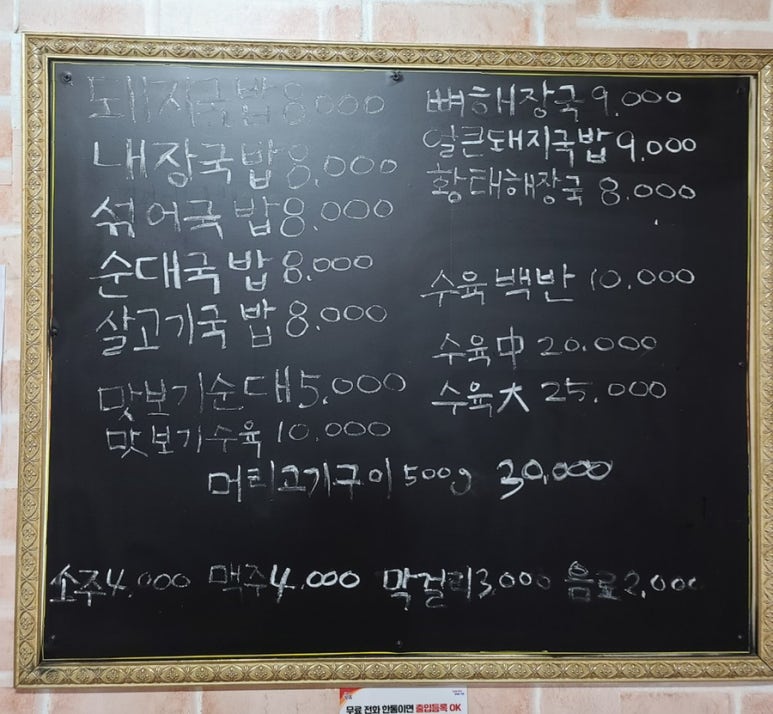 돼지국밥 8.000
내장국밥 8.000
섞어국밥 8.000
순대국밥 8.000
살고기국밥 8.000
맛보기순대 5.000
맛보기수육 10.000
뼈해장국 9.000
얼큰돼지국밥 9.000
황태해장국 8.000
수육백반 10.000
수육中 20.000
수육大 25.000
머리고기구이 500g 30,000
소주 4,000 맥주 4.000 막걸리 3,000 음료 2,000
무료 전화 한통이면 출입등록 OK